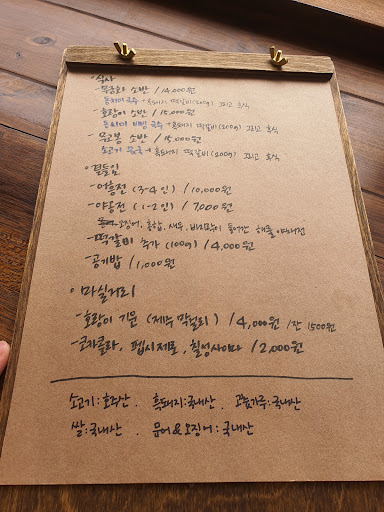 • 식사
- 무궁화 소반 / 14,000원
동치미 국수 + 흑돼지 떡갈비 (200g) 그리고 후식
- 호랑이 소반 / 15,000원
동치미 비빔 국수 + 흑돼지 떡갈비 (200g) 그리고 후식
소반 / 15,000원
소고기 + 흑돼지 떡갈비 (200g) 그리고 후식
• 곁들임
- 어흥전 (3-4인) / 10,000원
- 야흥전 (1-2인) / 7,000원
오징어, 홍합, 새우, 바지락이 들어간 해물 야채전
- 떡갈비 추가 (100g) / 4,000원
- 공기밥 / 1,000원
• 마실거리
- 호랑이 기운 (제주 막걸리) / 4,000원 / 잔 1500원
- 코카콜라, 펩시제로, 칠성사이다 / 2,000원
소고기: 호주산 . 흑돼지: 국내산 . 고춧가루: 국내산
쌀: 국내산 . 문어 & 오징어 : 국내산